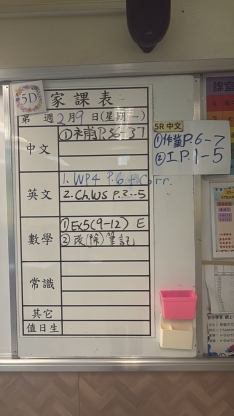 5D
家課表
第 週 2月9日(星期一)
中文
① 補 P.36-37
英文
1. WP4 P.6 + Corr.
2. Ch.WS P.2-5
數學
① Ex5(9-12) E
② 改(除)筆記
常識
其它
值日生
5R 中文
① 作 P.6-7
② 工 P.1-5